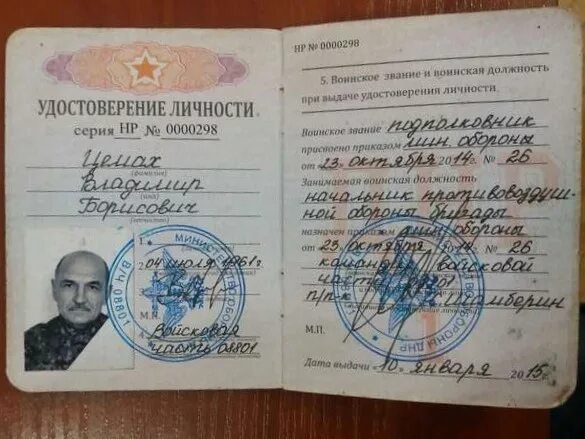 УДОСТОВЕРЕНИЕ ЛИЧНОСТИ
серия НР № 0000298
Цемах
(фамилия)
Владимир
(имя)
Борисович
(отчество)
1.
2. 04 июля 1961 г.
М.П.
4.
Войсковая
часть 08801
МИНИСТЕРСТВО ОБОРОНЫ
В/Ч 08801
НР № 0000298
5. Воинское звание и воинская должность
при выдаче удостоверения личности
Воинское звание подполковник
присвоено приказом мин. обороны
от «23» октября 2014 г. № 26
Занимаемая воинская должность
начальник противовоздуш-
ной обороны бригады
назначен приказом мин. обороны
от «23» октября 2014 г. № 26
командир войсковой
части 08801
п/п-к Шамберин
М.П.
ОБОРОНЫ ДНР
Дата выдачи «10» января 2015 г.